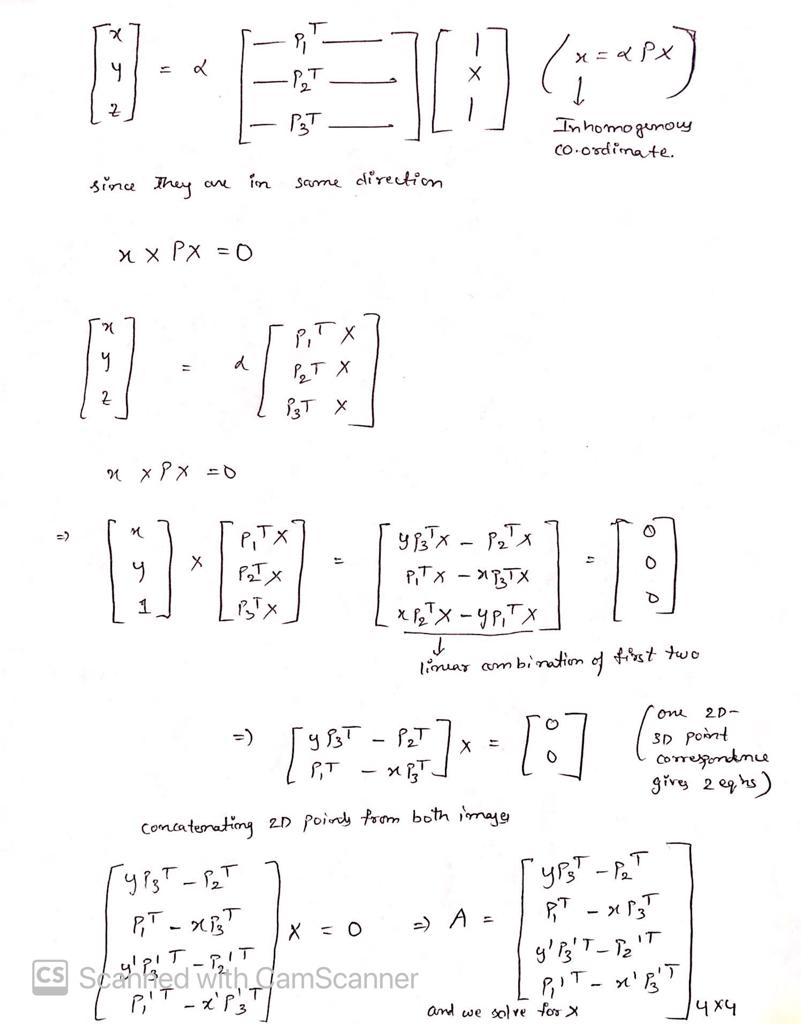 [x y z] = α [— P₁ᵀ — — P₂ᵀ — — P₃ᵀ —] [| X |] (x = α PX)
↓
In homogenous
co.ordinate.
since they are in same direction
x × PX = 0
[x y z] = α [P₁ᵀ X P₂ᵀ X P₃ᵀ X]
x × PX = 0
⇒ [x y 1] × [P₁ᵀX P₂ᵀX P₃ᵀX] = [yP₃ᵀX – P₂ᵀX P₁ᵀX – xP₃ᵀX xP₂ᵀX – yP₁ᵀX] = [0 0 0]
↓
linear combination of first two
⇒ [yP₃ᵀ – P₂ᵀ P₁ᵀ – xP₃ᵀ] X = [0 0] (one 2D-
3D point
correspondence
gives 2 eqns)
concatenating 2D points from both images
[yP₃ᵀ – P₂ᵀ P₁ᵀ – xP₃ᵀ y'P₃'ᵀ – P₂'ᵀ P₁'ᵀ – x'P₃'ᵀ] X = 0 ⇒ A = [yP₃ᵀ – P₂ᵀ P₁ᵀ – xP₃ᵀ y'P₃'ᵀ – P₂'ᵀ P₁'ᵀ – x'P₃'ᵀ] 4x4
and we solve for X
CS Scanned with CamScanner